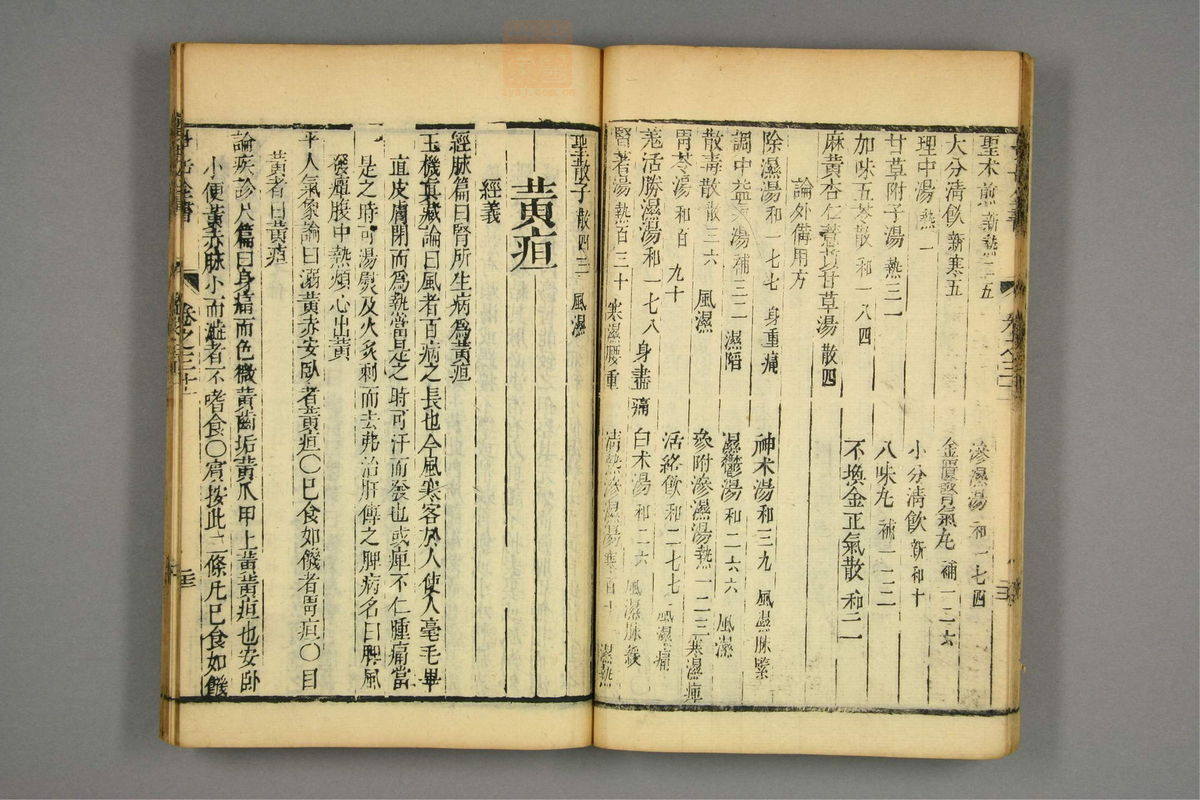 聖术煎 新熱二五 滲濕湯 和一七四
大分清飲 新寒五 金匱腎氣丸 補一二六
理中湯 熱一 小分清飲 新和十
甘草附子湯 熱三一 八味丸 補一二二
加味五苓散 和一八四 不換金正氣散 和二一
麻黃杏仁薏苡甘草湯 散四
論外備用方
除濕湯 和一七七 身重痛 神术湯 和三九 風濕脉緊
調中益氣湯 補三二 濕陷 濕鬱湯 和二六六 風濕
散毒散 散三六 風濕 參附滲濕湯 熱一二三 寒濕痺
胃苓湯 和百九十 活絡飲 和二七七 風濕痛
羗活勝濕湯 和一七八 身盡痛 白术湯 和二六 風濕脉緩
腎著湯 熱百三十 寒濕腰重 清熱滲濕湯 寒百十 濕熱
聖散子 散四三 風濕
黃疸
經義
經脉篇曰腎所生病爲黃疸
玉機真藏論曰風者百病之長也今風寒客於人使人毫毛畢
直皮膚閉而爲熱當是之時可汗而發也或痺不仁腫痛當
是之時可湯熨及火炙刺而去弗治肝傳之脾病名曰脾風
發癉腹中熱煩心出黃
平人氣象論曰溺黃赤安臥者黃疸○已食如饑者胃疸○目
黃者曰黃疸
論疾診尺篇曰身痛而色微黃齒垢黃爪甲上黃黃疸也安臥
小便黃赤脉小而濇者不嗜食○肩按此二條凡已食如饑
卷之三十一